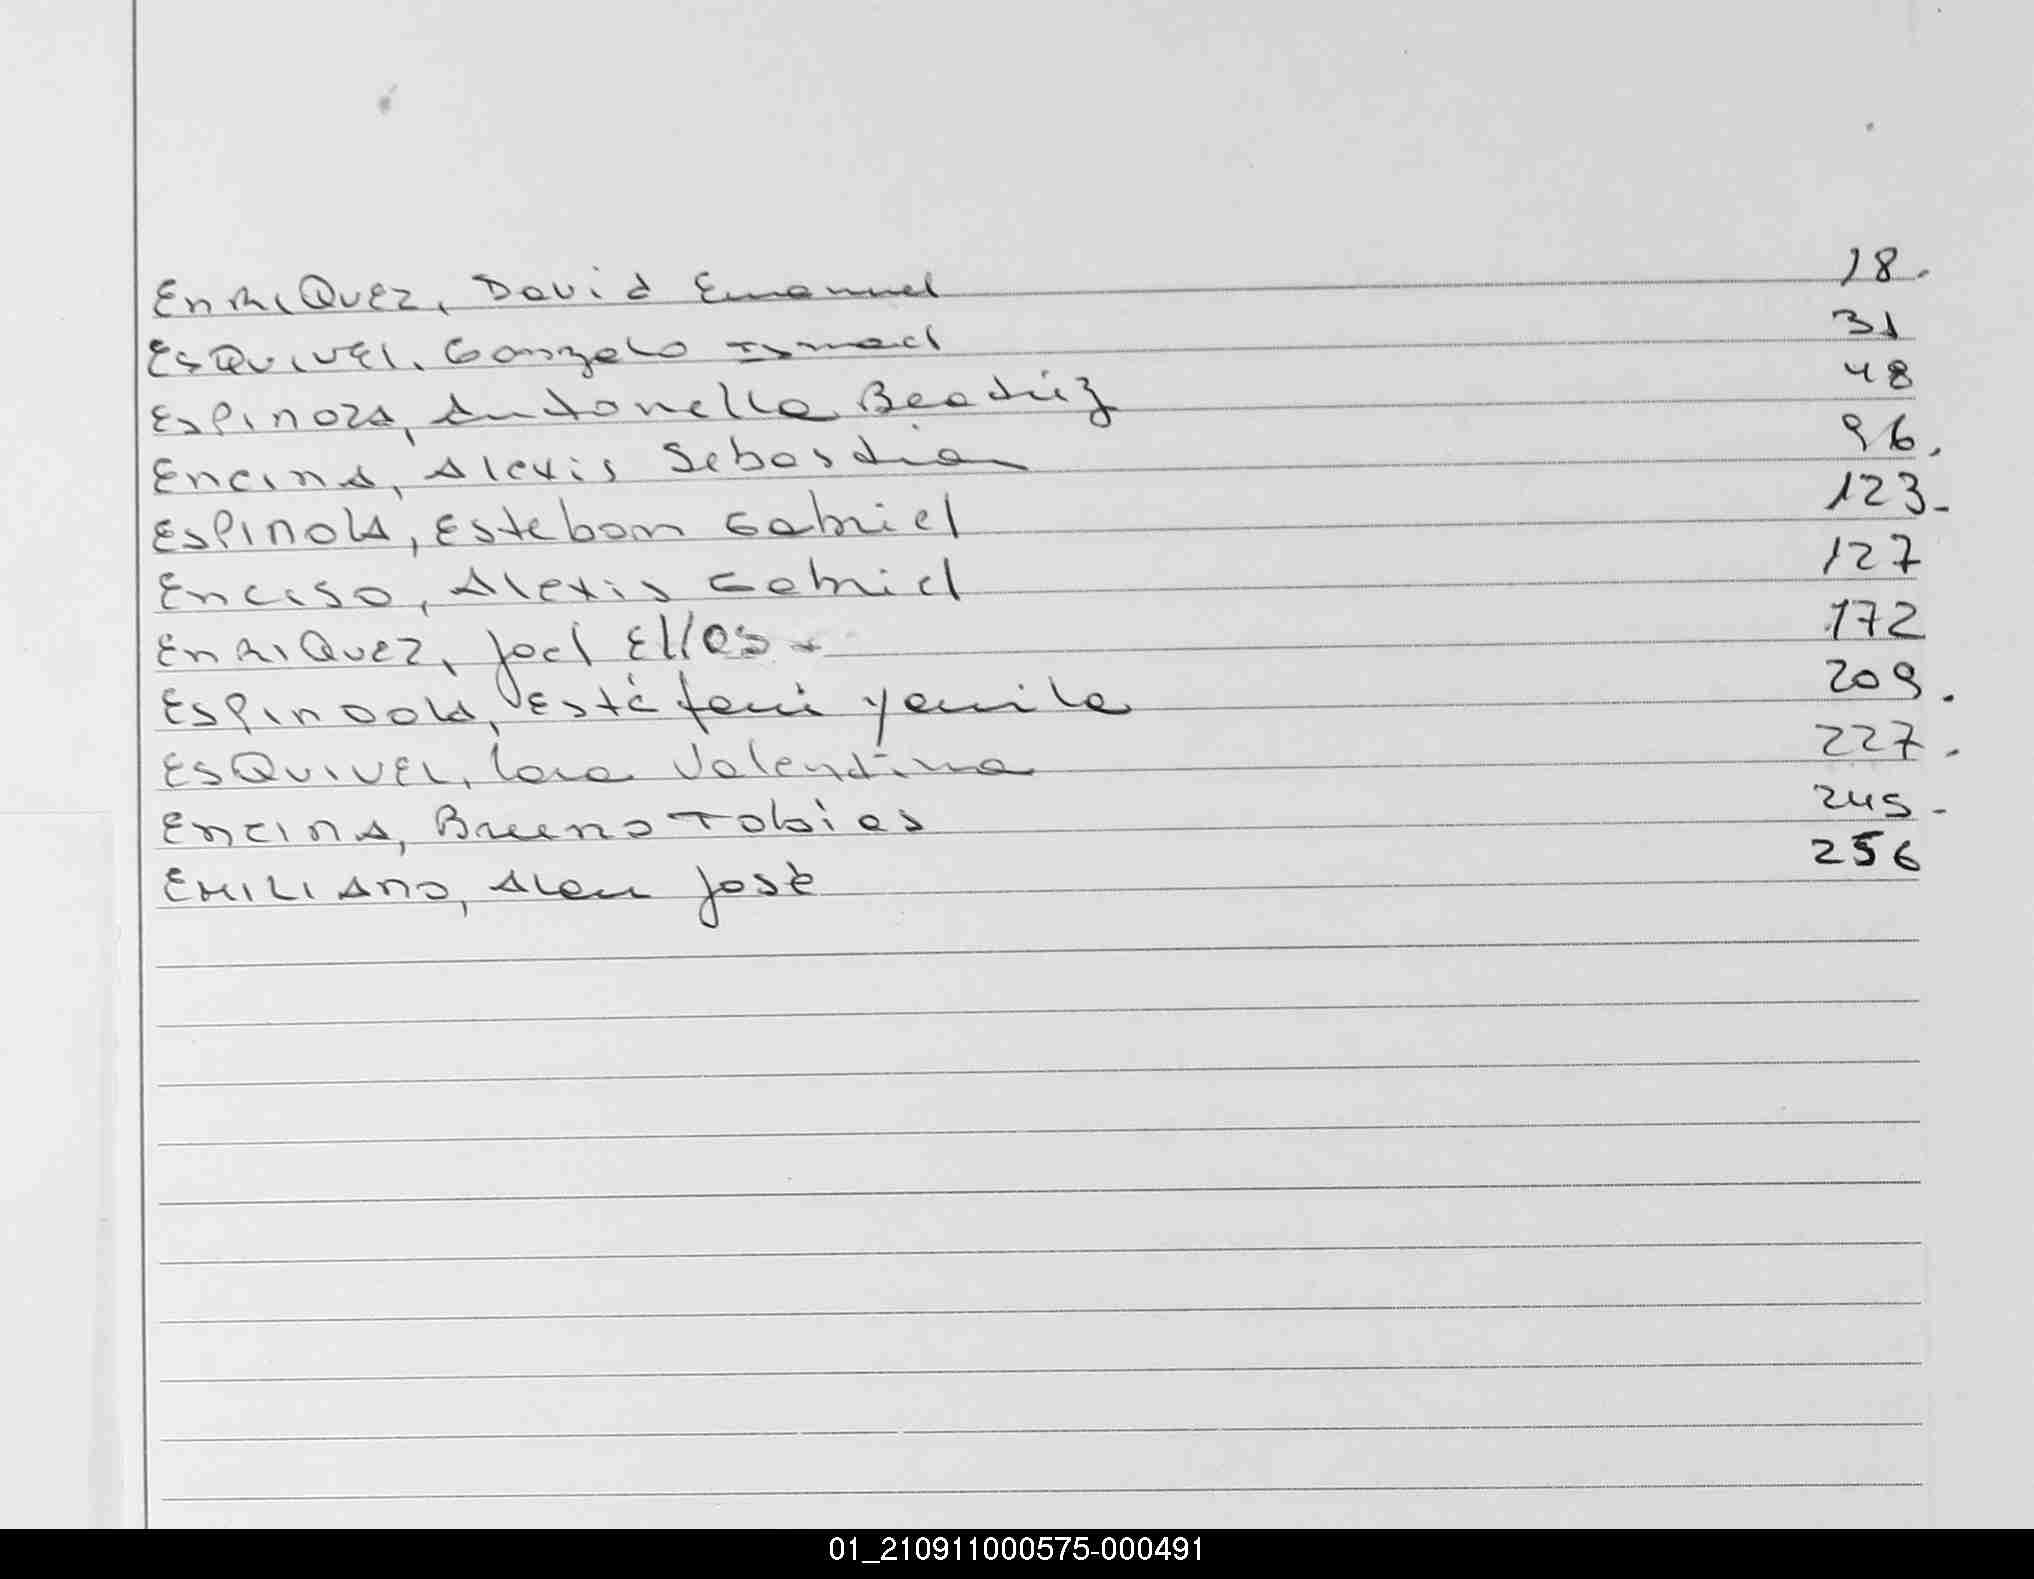 Enriquez, David Emanuel 18.
Esquivel, Gonzalo Ismael 31
Espinoza, Antonella Beatriz 48
Encina, Alexis Sebastian 96.
Espinola, Esteban Gabriel 123-
Enciso, Alexis Gabriel 127
Enriquez, Joel 172
Espindola, Estéfani Yamila 209.
Esquivel, Lara Valentina 227.
Encina, Bruno Tobias 245-
Emiliano, Alan José 256
01_210911000575-000491